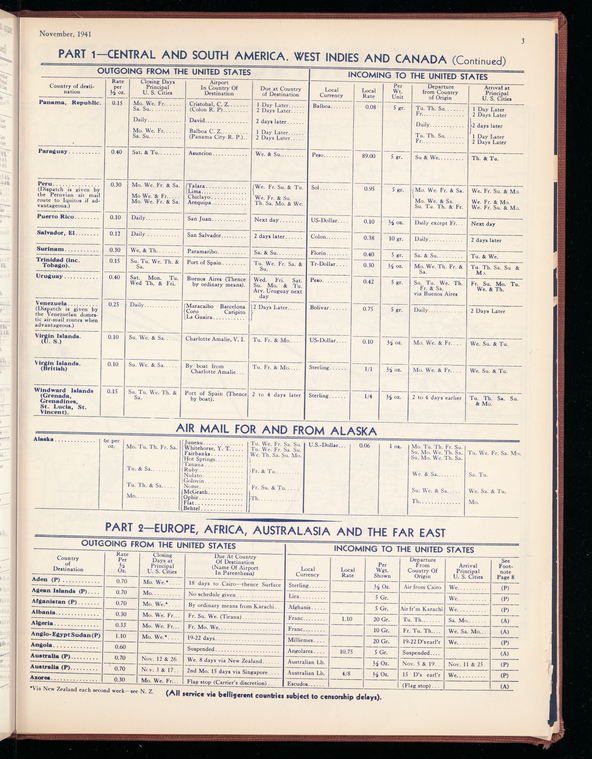 November, 1941
3
PART 1—CENTRAL AND SOUTH AMERICA. WEST INDIES AND CANADA (Continued)
OUTGOING FROM THE UNITED STATES INCOMING TO THE UNITED STATES
Country of desti-nation Rate per ½ oz. Closing Days Principal U. S. Cities Airport In Country Of Destination Due at Country of Destination Local Currency Local Rate Per Wt. Unit Departure from Country of Origin Arrival at Principal U. S. Cities
Panama, Republic. 0.15 Mo. We. Fr. Cristobal, C. Z. 1 Day Later Balboa 0.08 5 gr. Tu. Th. Su. 1 Day Later
Sa. Su. (Colon R. P.) 2 Days Later Fr. 2 Days Later
Daily David 2 days later Daily 2 days later
Mo. We. Fr. Balboa C. Z. 1 Day Later Tu. Th. Su. 1 Day Later
Sa. Su. (Panama City R. P.) 2 Days Later Fr. 2 Days Later
Paraguay 0.40 Sat. & Tu. Asuncion We. & Su. Peso 89.00 5 gr. Su & We. Th. & Tu.
Peru 0.30 Mo. We. Fr. & Sa. Talara We. Fr. Su. & Tu. Sol 0.95 5 gr. Mo. We. Fr. & Sa. We. Fr. Su. & Mo.
(Dispatch is given by the Peruvian air mail route to Iquitos if advantageous.) Lima
Mo. We & Fr. Chiclayo We. Fr. & Su. Mo. We. & Sa. We. Fr. & Mo.
Mo. We. Fr. & Sa. Arequipa Th. Sa. Mo. & We. Su. Tu. Th. & Fr. We. Fr. Su. & Mo.
Puerto Rico 0.10 Daily San Juan. Next day US-Dollar 0.10 ½ oz. Daily except Fr. Next day
Salvador, El 0.12 Daily San Salvador. 2 days later Colon 0.38 10 gr. Daily 2 days later
Surinam 0.30 We. & Th. Paramaribo. Sa. & Su. Florin 0.40 5 gr. Sa. & Su. Tu. & We.
Trinidad (inc. Tobago). 0.15 Su. Tu. We. Th. & Sa. Port of Spain Tu. We. Fr. Sa. & Su. Tr-Dollar 0.30 ½ oz. Mo. We. Th. Fr. & Sa. Tu. Th. Sa. Su & M.
Uruguay 0.40 Sat. Mon. Tu. Wed Th. & Fri. Buenos Aires (Thence by ordinary means). Wed. Fri. Sat. Su. Mo. & Tu. Arv. Uruguay next day Peso 0.42 5 gr. Su. Tu. We. Th. Fr. & Sa. via Buenos Aires Fr. Su. Mo. Tu. We. & Th.
Venezuela 0.25 Daily Maracaibo Barcelona 2 Days Later Bolivar 0.75 5 gr. Daily 2 Days Later
(Dispatch is given by the Venezuelan domestic air-mail routes when advantageous.) Coro Caripito
La Guaira
Virgin Islands. (U. S.) 0.10 Su. We. & Sa. Charlotte Amalie, V. I. Tu. Fr. & Mo. US-Dollar 0.10 ½ oz. Mo. We. & Fr. We. Su. & Tu.
Virgin Islands. (British) 0.10 Su. We. & Sa. By boat from Charlotte Amalie Tu. Fr. & Mo. Sterling 1/1 ½ oz. Mo. We. & Fr. We. Su. & Tu.
Windward Islands (Grenada, Grenadines, St. Lucia, St. Vincent). 0.15 Su. Tu. We. Th. & Sa. Port of Spain (Thence by boat). 2 to 4 days later Sterling 1/4 ½ oz. 2 to 4 days earlier Tu. Th. Sa. Su. & Mo.
AIR MAIL FOR AND FROM ALASKA
Alaska 6c per oz. Mo. Tu. Th. Fr. Sa. Juneau Tu. We. Fr. Sa. Su. U.S.-Dollar 0.06 1 oz. Mo. Tu. Th. Fr. Su. Tu. We. Fr. Sa. Mo.
Whitehorse, Y. T. Tu. We. Fr. Sa. Su. Su. Mo. We. Th. Sa.
Fairbanks We. Th. Sa. Su. Mo. Su. Mo. We. Th. Sa.
Hot Springs
Tanana
Tu. & Sa. Ruby Fr. & Tu. We. & Sa. Sa. Tu.
Nulato
Golovin
Tu. Th. & Sa. Nome Fr. Su. & Tu. Su. We. & Sa. We. Sa. & Tu.
McGrath
Mo. Ophir Th. Th. Mo.
Flat
Bethel
PART 2—EUROPE, AFRICA, AUSTRALASIA AND THE FAR EAST
OUTGOING FROM THE UNITED STATES INCOMING TO THE UNITED STATES
Country of Destination Rate Per ½ Oz. Closing Days at Principal U. S. Cities Due At Country Of Destination (Name Of Airport In Parenthesis) Local Currency Local Rate Per Wgt. Shown Departure From Country Of Origin Arrival Principal U. S. Cities See Foot-note Page 8
Aden (P) 0.70 Mo. We.* 18 days to Cairo—thence Surface Sterling ½ Oz. Air from Cairo We. (P)
Agean Islands (P) 0.70 Mo. No schedule given Lira 5 Gr. We. (P)
Afganistan (P) 0.70 Mo. We.* By ordinary means from Karachi Afghania 5 Gr. Air f'm Karachi We. (P)
Albania 0.30 Mo. We. Fr. Fr. Su. We. (Tirana) Franc 1.10 20 Gr. Tu. Th. Sa. Mo. (A)
Algeria 0.33 Mo. We. Fr. Fr. Mo. We. Franc 10 Gr. Fr. Tu. Th. We. Sa. Mo. (A)
Anglo-Egypt Sudan (P) 1.10 Mo. We.* 19-22 days Milliemes 20 Gr. 19-22 D's earl'r We. (P)
Angola 0.60 Suspended Angolares 10.75 5 Gr. Suspended (A)
Australia (P) 0.70 Nov. 12 & 26 We. 8 days via New Zealand Australian Lb. ½ Oz. Nov. 5 & 19 Nov. 11 & 25 (P)
Australia (P) 0.70 Nov. 3 & 17 2nd Mo. 15 days via Singapore Australian Lb. 4/8 ½ Oz. 15 D's earl'r We. (P)
Azores 0.30 Mo. We. Fr. Flag stop (Carrier's discretion) Escudos (Flag stop) (A)
*Via New Zealand each second week—see N. Z. (All service via belligerent countries subject to censorship delays).